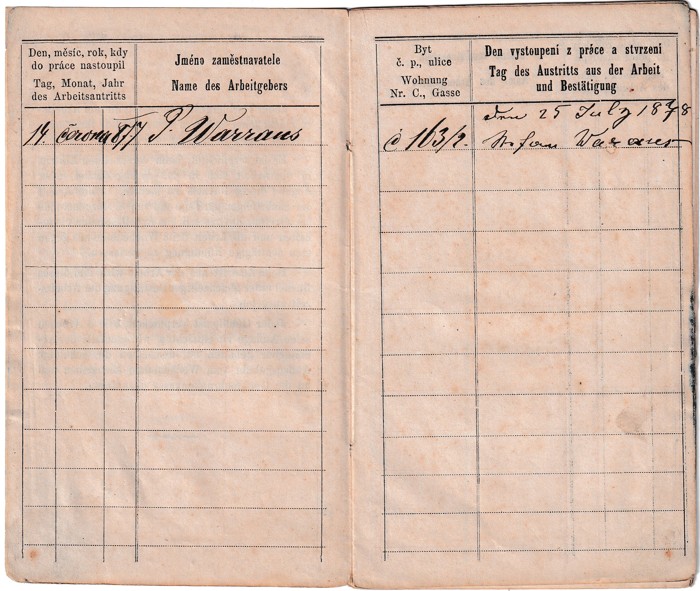 Den, měsíc, rok, kdy
do práce nastoupil
Tag, Monat, Jahr
des Arbeitsantritts
Jméno zaměstnavatele
Name des Arbeitgebers
14. června 877 P. Warraus
Byt
č. p., ulice
Wohnung
Nr. C., Gasse
Den vystoupení z práce a stvrzení
Tag des Austritts aus der Arbeit
und Bestätigung
den 25 July 1878
č 163/2. Stefan